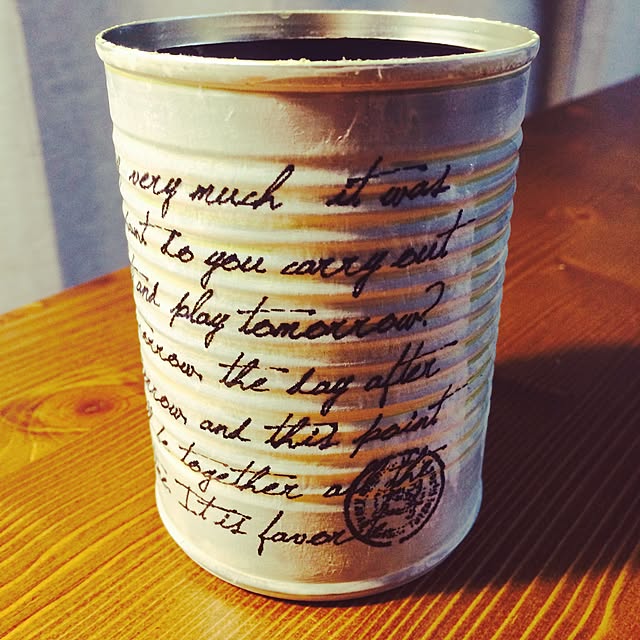 very much it was
to you carry out
and play tomorrow?
the day after
and this paint
together a the
It is favor